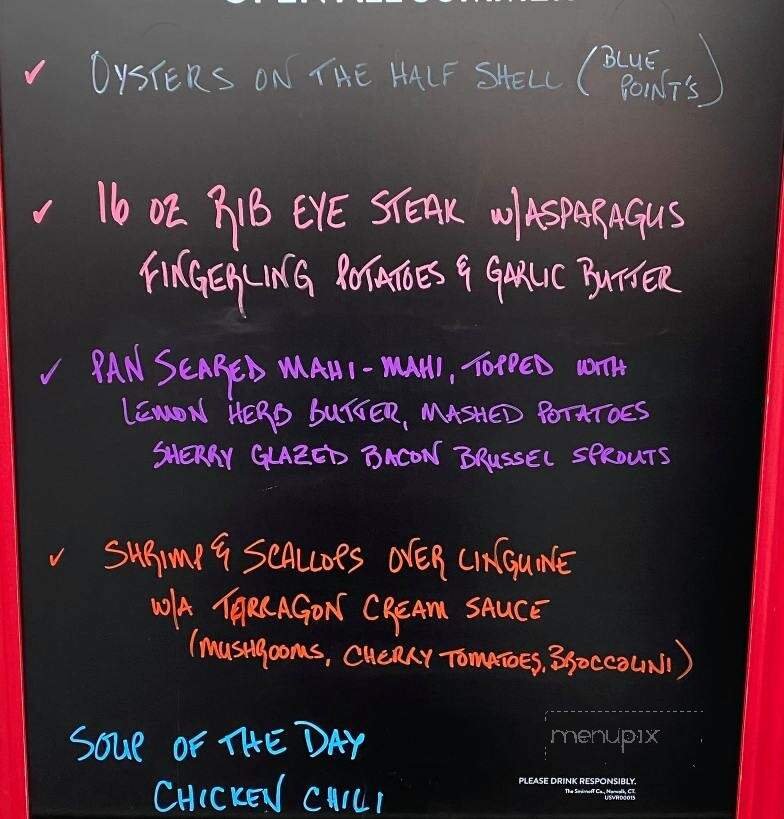 OYSTERS ON THE HALF SHELL (BLUE POINT'S)
16 OZ RIB EYE STEAK W/ASPARAGUS
FINGERLING POTATOES & GARLIC BUTTER
PAN SEARED MAHI-MAHI, TOPPED WITH
LEMON HERB BUTTER, MASHED POTATOES
SHERRY GLAZED BACON BRUSSEL SPROUTS
SHRIMP & SCALLOPS OVER LINGUINE
W/A TARRAGON CREAM SAUCE
(MUSHROOMS, CHERRY TOMATOES, BROCCOLINI)
SOUP OF THE DAY
CHICKEN CHILI
menupix
PLEASE DRINK RESPONSIBLY.
The Smirnoff Co., Norwalk, CT.
USVR00015